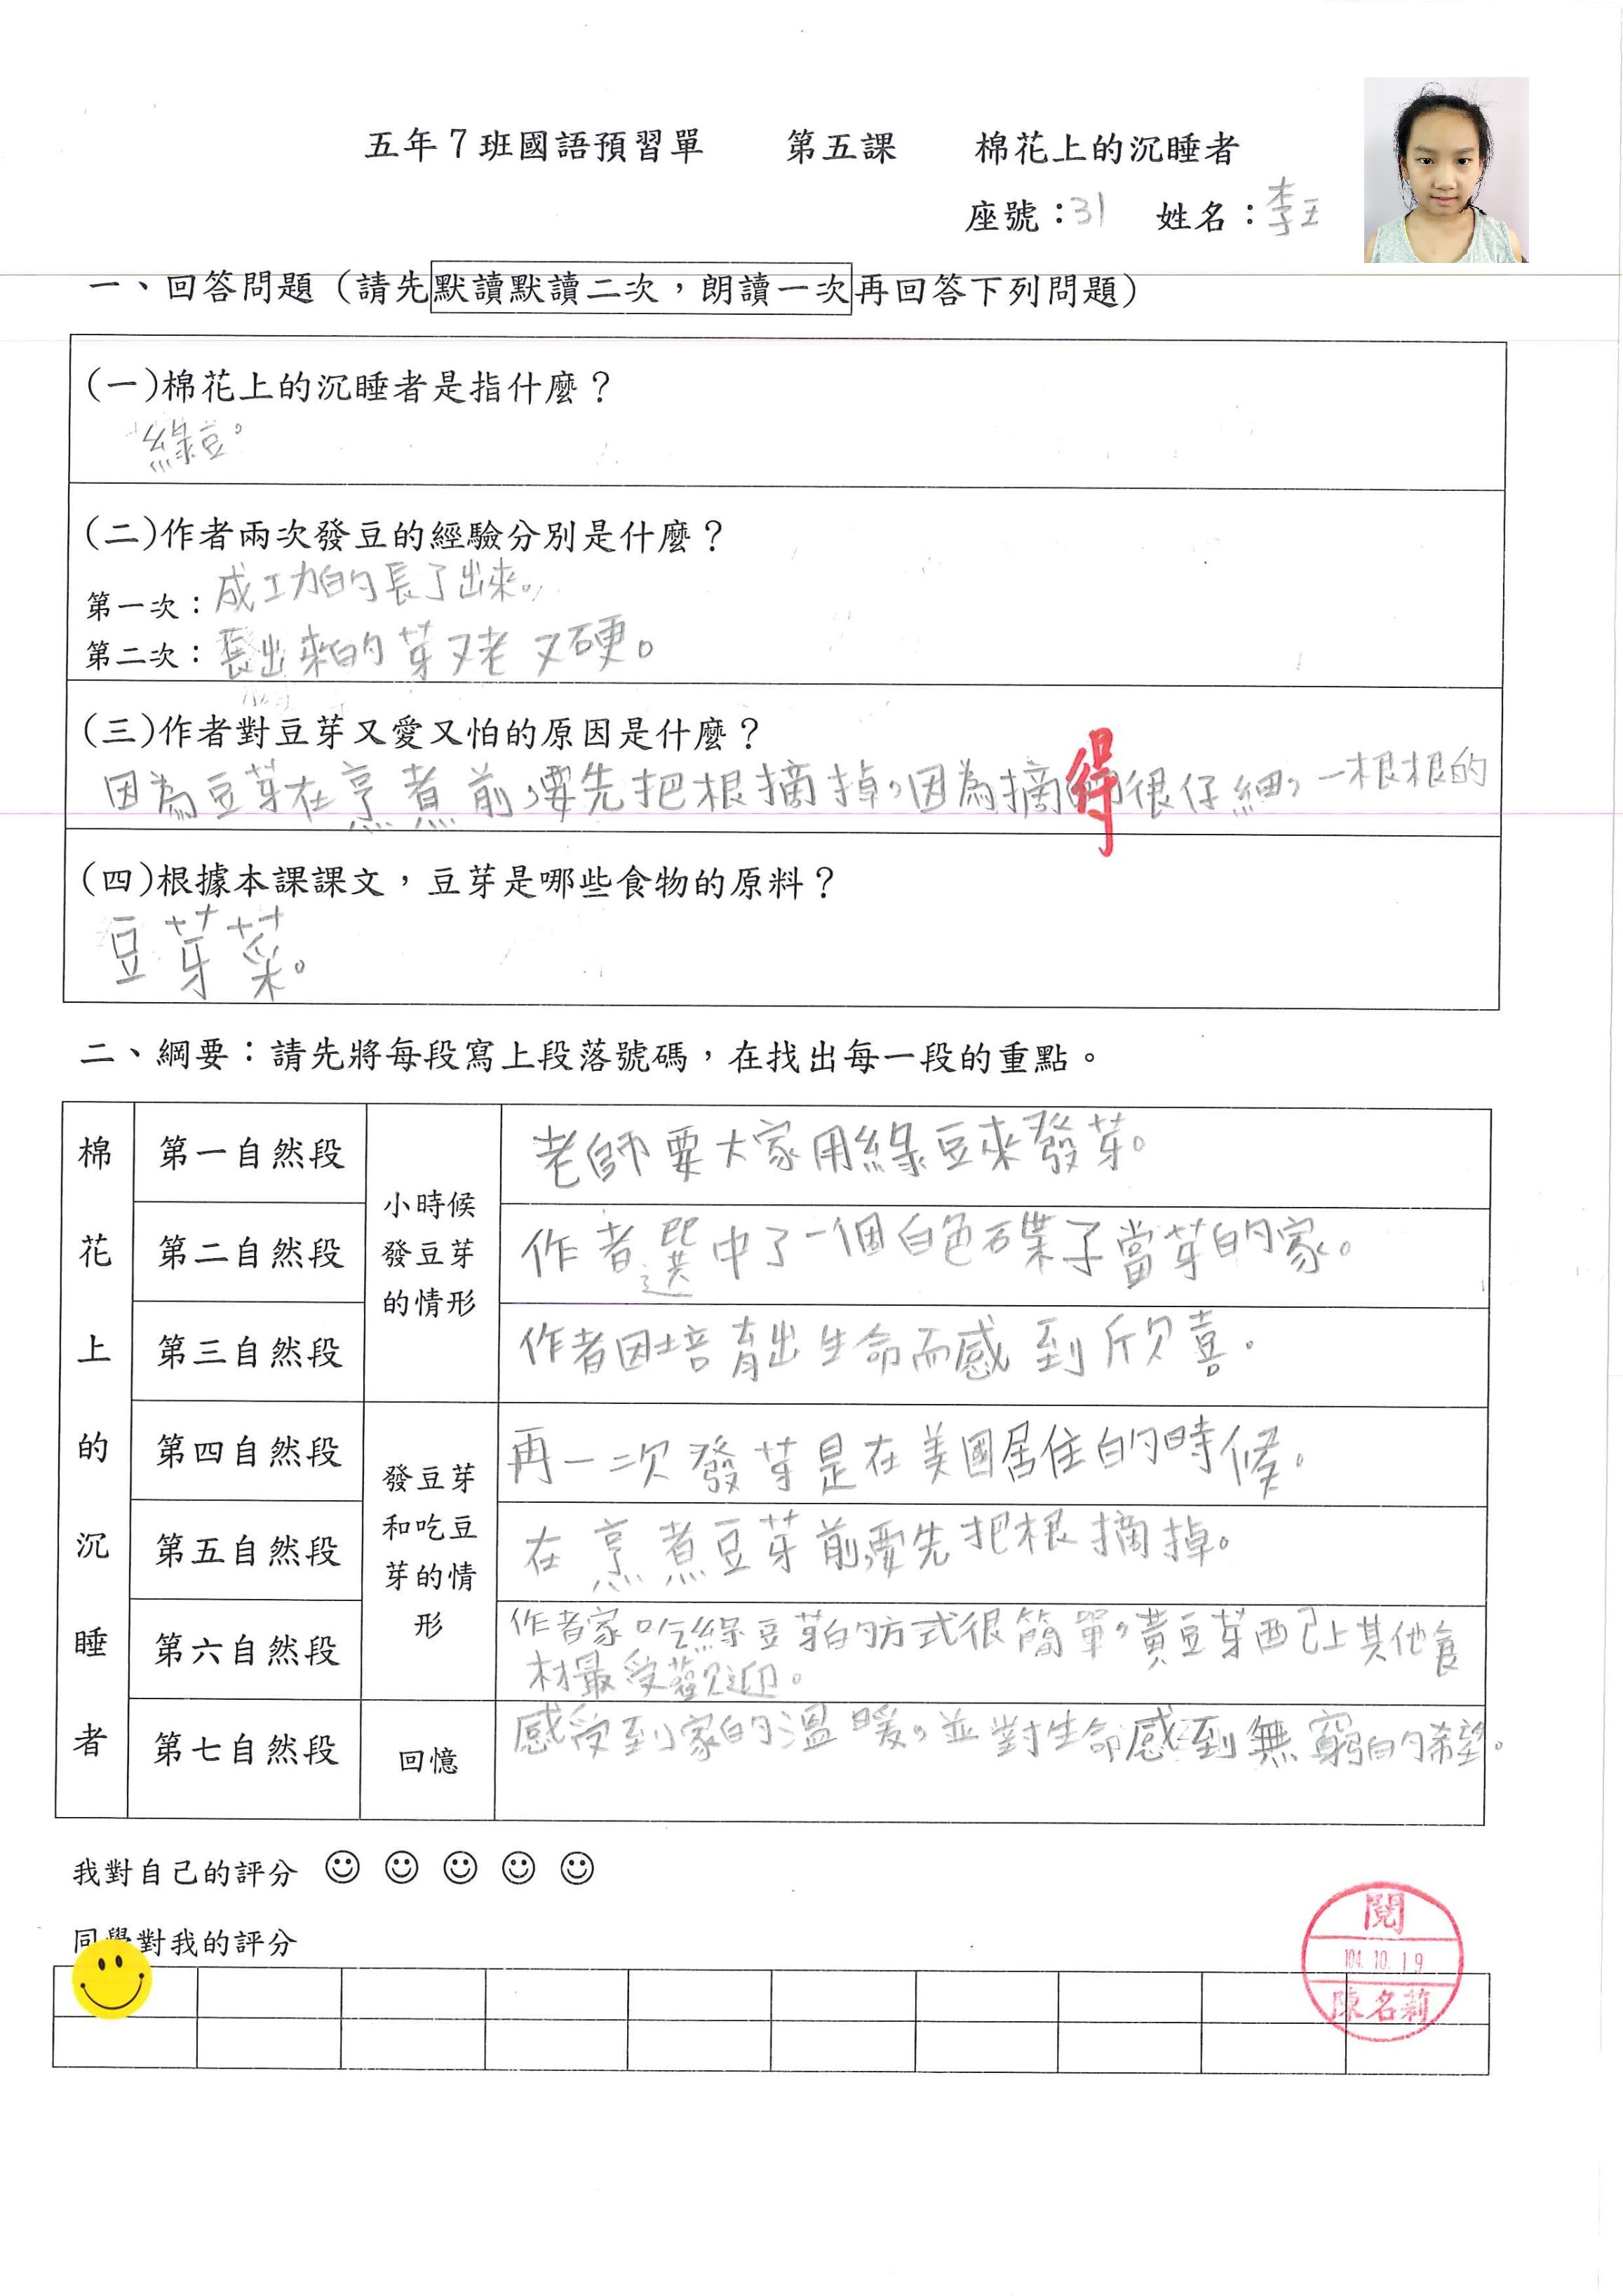 五年7班國語預習單 第五課 棉花上的沉睡者
座號：31 姓名：李王
一、回答問題（請先默讀默讀二次，朗讀一次再回答下列問題）
(一)棉花上的沉睡者是指什麼？
綠豆。
(二)作者兩次發豆的經驗分別是什麼？
第一次：成功的長了出來。
第二次：長出來的芽又老又硬。
(三)作者對豆芽又愛又怕的原因是什麼？
因為豆芽在烹煮前，要先把根摘掉，因為摘得很仔細，一根根的
(四)根據本課課文，豆芽是哪些食物的原料？
豆芽菜。
二、綱要：請先將每段寫上段落號碼，在找出每一段的重點。
棉花上的沉睡者
小時候發豆芽的情形
第一自然段 老師要大家用綠豆來發芽。
第二自然段 作者選中了一個白色碟子當芽的家。
第三自然段 作者因培育出生命而感到欣喜。
發豆芽和吃豆芽的情形
第四自然段 再一次發芽是在美國居住的時候。
第五自然段 在烹煮豆芽前，要先把根摘掉。
第六自然段 作者家吃綠豆芽的方式很簡單，黃豆芽配上其他食
材最受歡迎。
第七自然段 回憶 感受到家的溫暖，並對生命感到無窮的希望。
我對自己的評分
同學對我的評分
閱
104.10.19
陳名莉